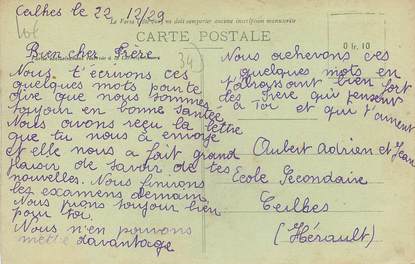 Ceilhes le 22 12/29
Le Verso ne doit comporter aucune inscription manuscrite
CARTE POSTALE
0 fr. 10
34
Bien cher Frère
Nous t'écrivons ces
quelques mots pour te
dire que nous sommes
toujour en bonne santée
Nous avons reçu la lettre
que tu nous à envoyé
et elle nous a fait grand
plaisir de savoir de tes
nouvelles. Nous finirons
les examens demain.
Nous prions toujour bien
pour toi.
Nous n'en pouvons
mettre davantage
Nous achevons ces
quelques mots en
t'embrassant bien fort
des frère qui pensent
à toi et qui t'aiment
Aubert Adrien et Jean
Ecole Secondaire
Ceilhes
(Hérault)